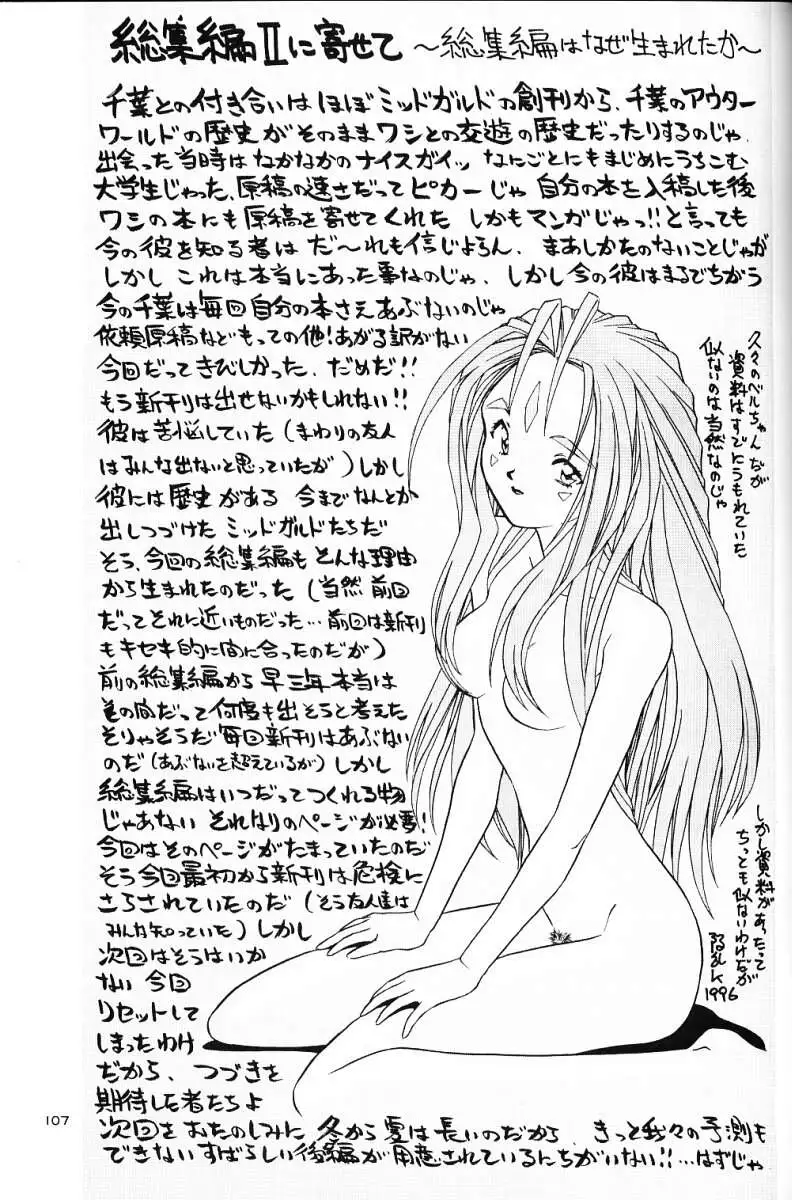 総集編Ⅱに寄せて 〜総集編はなぜ生まれたか〜
千葉との付き合いはほぼミッドガルドの創刊から、千葉のアウター
ワールドの歴史がそのままワシとの交遊の歴史だったりするのじゃ.
出会った当時はなかなかのナイスガイッ なにごとにもまじめにうちこむ
大学生じゃった、原稿の速さだってピカ一じゃ 自分の本を入稿した後
ワシの本にも原稿を寄せてくれた しかもマンガじゃっ!!と言っても
今の彼を知る者は だ〜れも信じよろん. まあしかたのないことじゃが
しかし これは本当にあった事なのじゃ. しかし今の彼はまるでちがう
今の千葉は毎回自分の本さえあぶないのじゃ
依頼原稿などもっての他!あがる訳がない
今回だってきびしかった. だめだ!!
もう新刊は出せないかもしれない!!
彼は苦悩していた(まわりの友人
はみんな出ないと思っていたが)しかし
彼には歴史がある 今までなんとか
出しつづけたミッドガルドたちだ
そう、今回の総集編もそんな理由
から生まれたのだった(当然前回
だってそれに近いものだった…前回は新刊
もキセキ的に間に合ったのだが)
前の総集編から早三年本当は
その間だって何度も出そうと考えた
そりゃそうだ毎回新刊はあぶない
のだ(あぶないを超えているが)しかし
総集編はいつだってつくれる物
じゃあない それなりのページが必要!
今回はそのページがたまっていたのだ
そう今回最初から新刊は危険に
さらされていたのだ(そう友人達は
みんな知っていた)しかし
次回はそうはいか
ない 今回
リセットして
しまったわけ
だから、つづきを
期待した者たちよ
次回をおたのしみに 冬から夏は長いのだから きっと我々の予測も
できないすばらしい後編が用意されているにちがいない!!…はずじゃ
久々のベルちゃんだが
資料はすでにうもれていた
似ないのは当然なのじゃ
しかし資料があったって
ちっとも似ないわけだが
1996
107